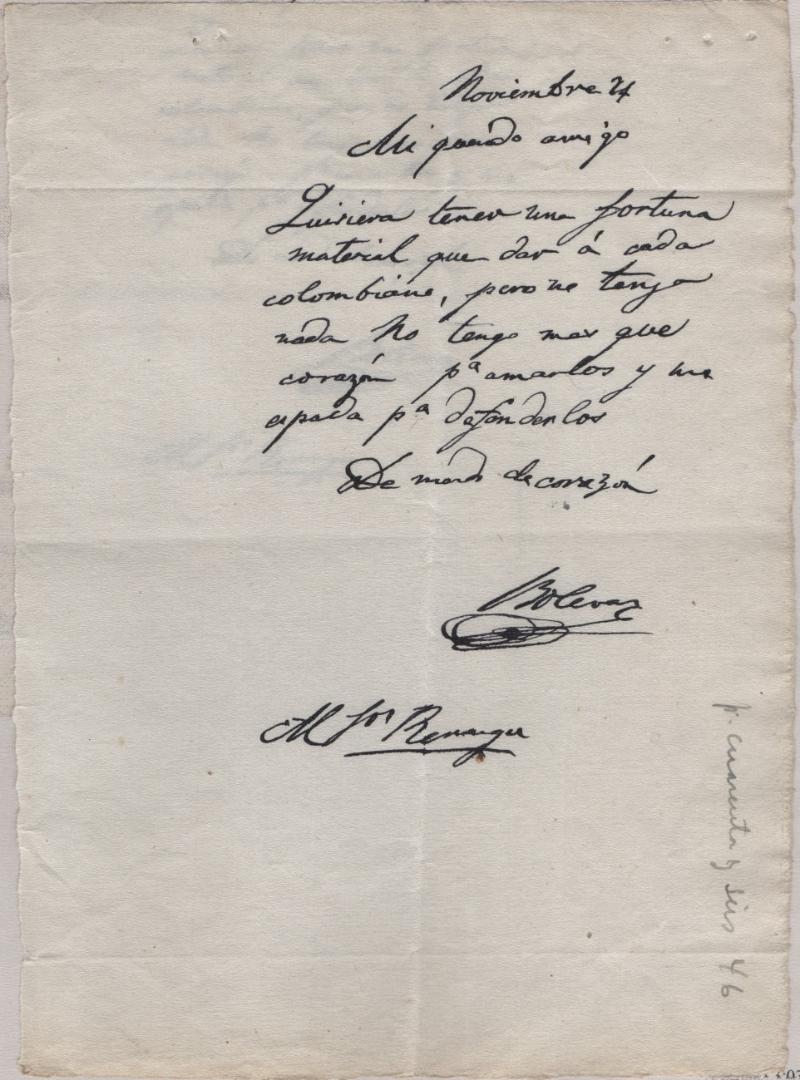 Noviembre 24
Mi querido amigo
Quisiera tener una fortuna
material que dar á cada
colombiano, pero no tengo
nada No tengo mas que
corazón pª amarlos y una
espada pª defenderlos
De corazón
Bolivar
M Sor
p. cuarenta y seis 46